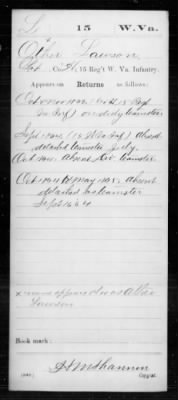 L | 15 | W. Va.
Other Lawson
Co. H, 15 Reg't W. Va. Infantry.
Appears on
Returns as follows:
Oct & Nov 1862 (Co H 15 Regt
Va Inf) on duty teamster
Sept 1864 (15 W Va Inf) Absent
detailed teamster July.
Oct 1864 Absent Div. teamster
Oct 1864 to May 1865 absent
detailed as teamster
Sept 16 64
x name appears also as Other
Lawson
Book mark:
H M Shannon
Copyist.